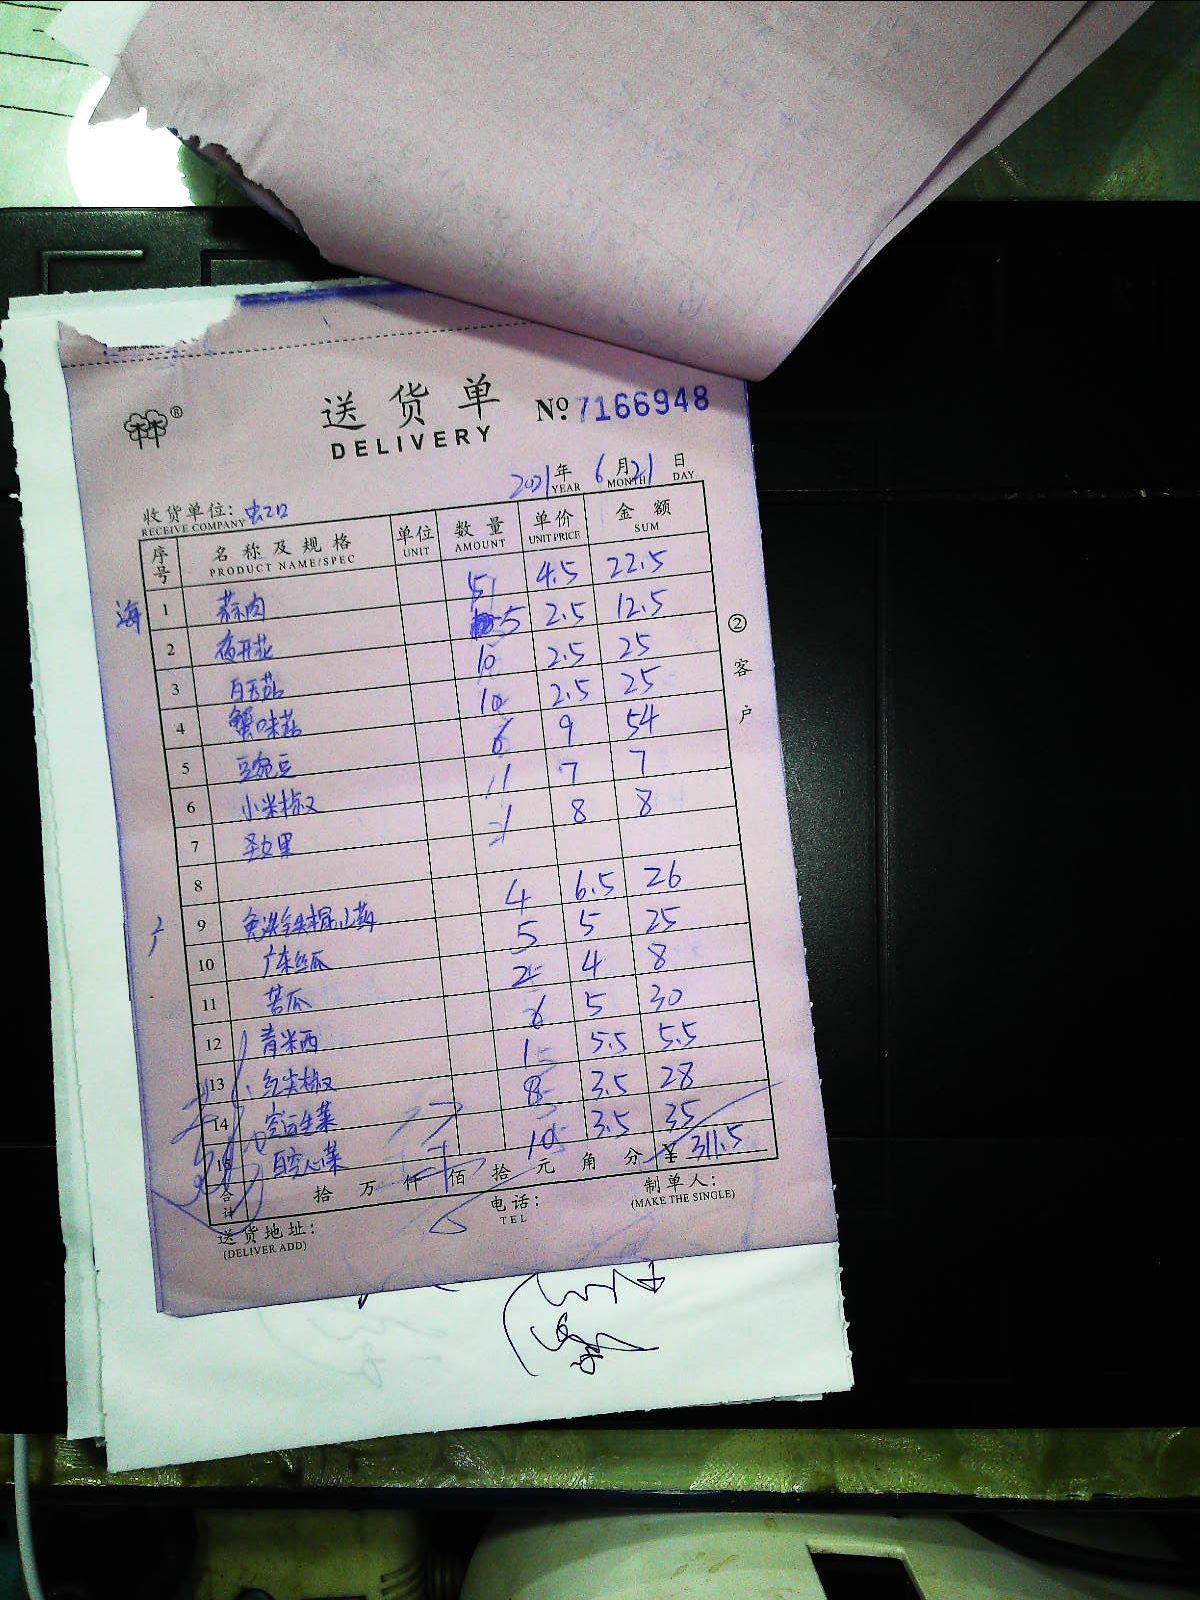 送货单 №7166948
DELIVERY
2021年 6月21日
YEAR MONTH DAY
收货单位: 虹口
RECEIVE COMPANY
序号 名称及规格 单位 数量 单价 金额
PRODUCT NAME/SPEC UNIT AMOUNT UNIT PRICE SUM
海 1 蒜肉 5 4.5 22.5
2 夜开花 5 2.5 12.5
3 白玉菇 10 2.5 25
4 蟹味菇 10 2.5 25
5 豆宛豆 6 9 54
6 小米椒 1 7 7
7 圣女果 1 8 8
8
广 9 免洗铁棍山药 4 6.5 26
10 广东丝瓜 5 5 25
11 苦瓜 2 4 8
12 青米西 6 5 30
13 红尖椒 1 5.5 5.5
14 空运生菜 8 3.5 28
15 白空心菜 10 3.5 35
合计 拾 万 仟 佰 拾 元 角 分 ¥ 311.5
送货地址: 电话: 制单人:
(DELIVER ADD) TEL (MAKE THE SINGLE)
②客户